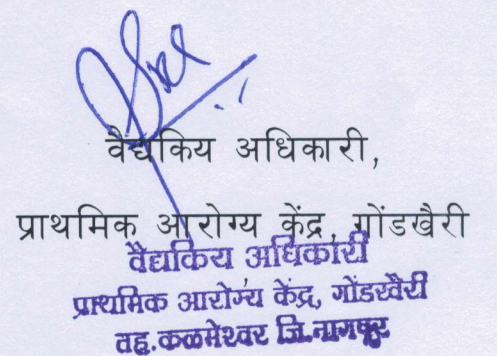 वैद्यकिय अधिकारी,
प्राथमिक आरोग्य केंद्र, गोंडखैरी
वैद्यकिय अधिकारी
प्राथमिक आरोग्य केंद्र, गोंडखैरी
तह.कळमेश्वर जि.नागपूर